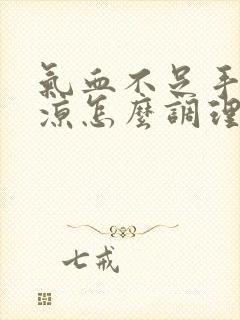 氣血不足手
涼怎麼調理
七戒